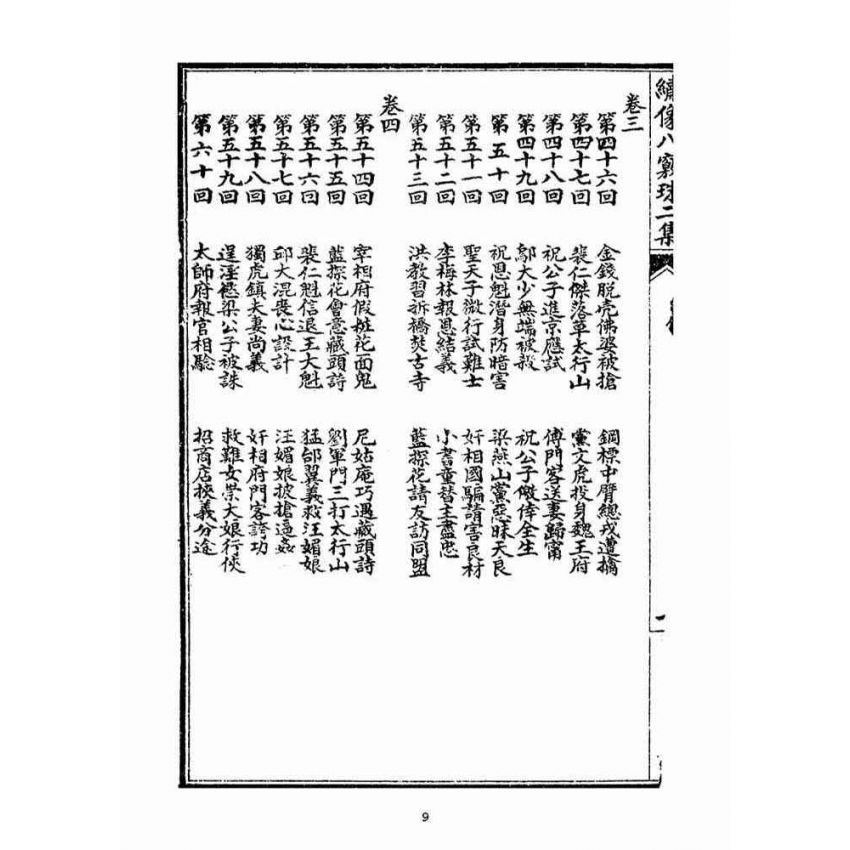 繡像八竅珠二集
卷三
第四十六回 金錢脱壳佛婆被搶 鋼標中臂總戎遭擒
第四十七回 裴仁傑落草太行山 黨文虎投身魏王府
第四十八回 祝公子進京應試 傅門客送妻歸甯
第四十九回 鄔大少無端被殺 祝公子僥倖全生
第五十回 祝恩魁潛身防暗害 梁燕山黨惡昧天良
第五十一回 聖天子微行試難士 奸相國騙請害良材
第五十二回 李梅林報恩結義 小書童替主盡忠
第五十三回 洪教習拆橋焚古寺 藍探花請友訪同盟
卷四
第五十四回 宰相府假粧花面鬼 尼姑庵巧遇藏頭詩
第五十五回 藍探花會意藏頭詩 劉軍門三打太行山
第五十六回 裴仁魁信退王大魁 猛郃翼義救汪媚娘
第五十七回 邱大混喪心設計 汪媚娘披搶逼姦
第五十八回 獨虎鎮夫妻尚義 奸相府門客誇功
第五十九回 逞淫慾梁公子被誅 救難女柴大娘行俠
第六十回 太師府報官相驗 招商店挾義分途
9